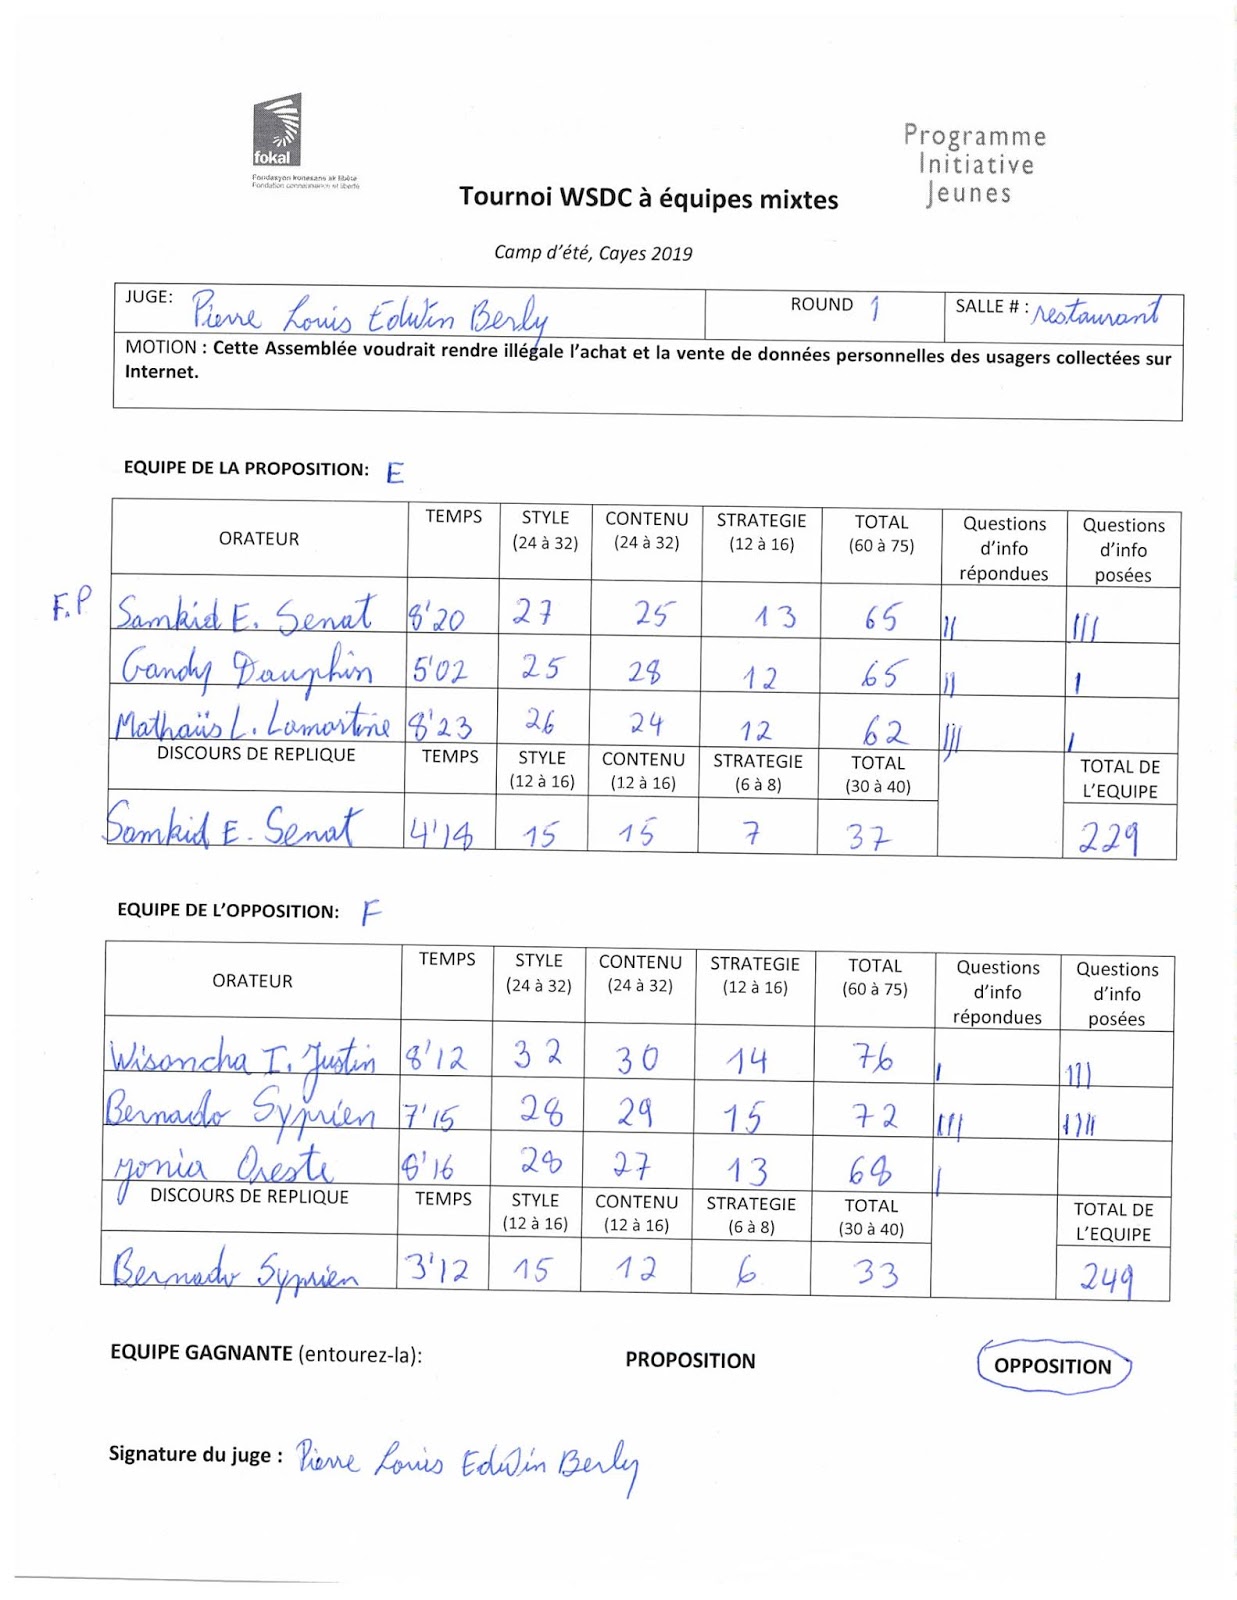 fokal
Fondasyon konesans ak libète
Fondation connaissance et liberté
Programme
Initiative
Jeunes
Tournoi WSDC à équipes mixtes
Camp d'été, Cayes 2019
JUGE: Pierre Louis Edwin Berly ROUND 1 SALLE # : restaurant
MOTION : Cette Assemblée voudrait rendre illégale l'achat et la vente de données personnelles des usagers collectées sur
Internet.
EQUIPE DE LA PROPOSITION: E
ORATEUR TEMPS STYLE (24 à 32) CONTENU (24 à 32) STRATEGIE (12 à 16) TOTAL (60 à 75) Questions d'info répondues Questions d'info posées
F.P Samkid E. Senat 8'20 27 25 13 65 || |||
Gandy Dauphin 5'02 25 28 12 65 || |
Mathaüs L. Lamartine 8'23 26 24 12 62 ||| |
DISCOURS DE REPLIQUE TEMPS STYLE (12 à 16) CONTENU (12 à 16) STRATEGIE (6 à 8) TOTAL (30 à 40) TOTAL DE L'EQUIPE
Samkid E. Senat 4'18 15 15 7 37 229
EQUIPE DE L'OPPOSITION: F
ORATEUR TEMPS STYLE (24 à 32) CONTENU (24 à 32) STRATEGIE (12 à 16) TOTAL (60 à 75) Questions d'info répondues Questions d'info posées
Wisancha I. Justin 8'12 32 30 14 76 | |||
Bernado Syprien 7'15 28 29 15 72 ||| ||||
Yonia Oreste 8'16 28 27 13 68 |
DISCOURS DE REPLIQUE TEMPS STYLE (12 à 16) CONTENU (12 à 16) STRATEGIE (6 à 8) TOTAL (30 à 40) TOTAL DE L'EQUIPE
Bernado Syprien 3'12 15 12 6 33 249
EQUIPE GAGNANTE (entourez-la): PROPOSITION OPPOSITION
Signature du juge : Pierre Louis Edwin Berly